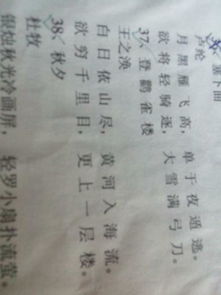 36、塞下曲
卢纶
月黑雁飞高，单于夜遁逃。
欲将轻骑逐，大雪满弓刀。
37、登鹳雀楼
王之涣
白日依山尽，黄河入海流。
欲穷千里目，更上一层楼。
38、秋夕
杜牧
银烛秋光冷画屏，轻罗小扇扑流萤。